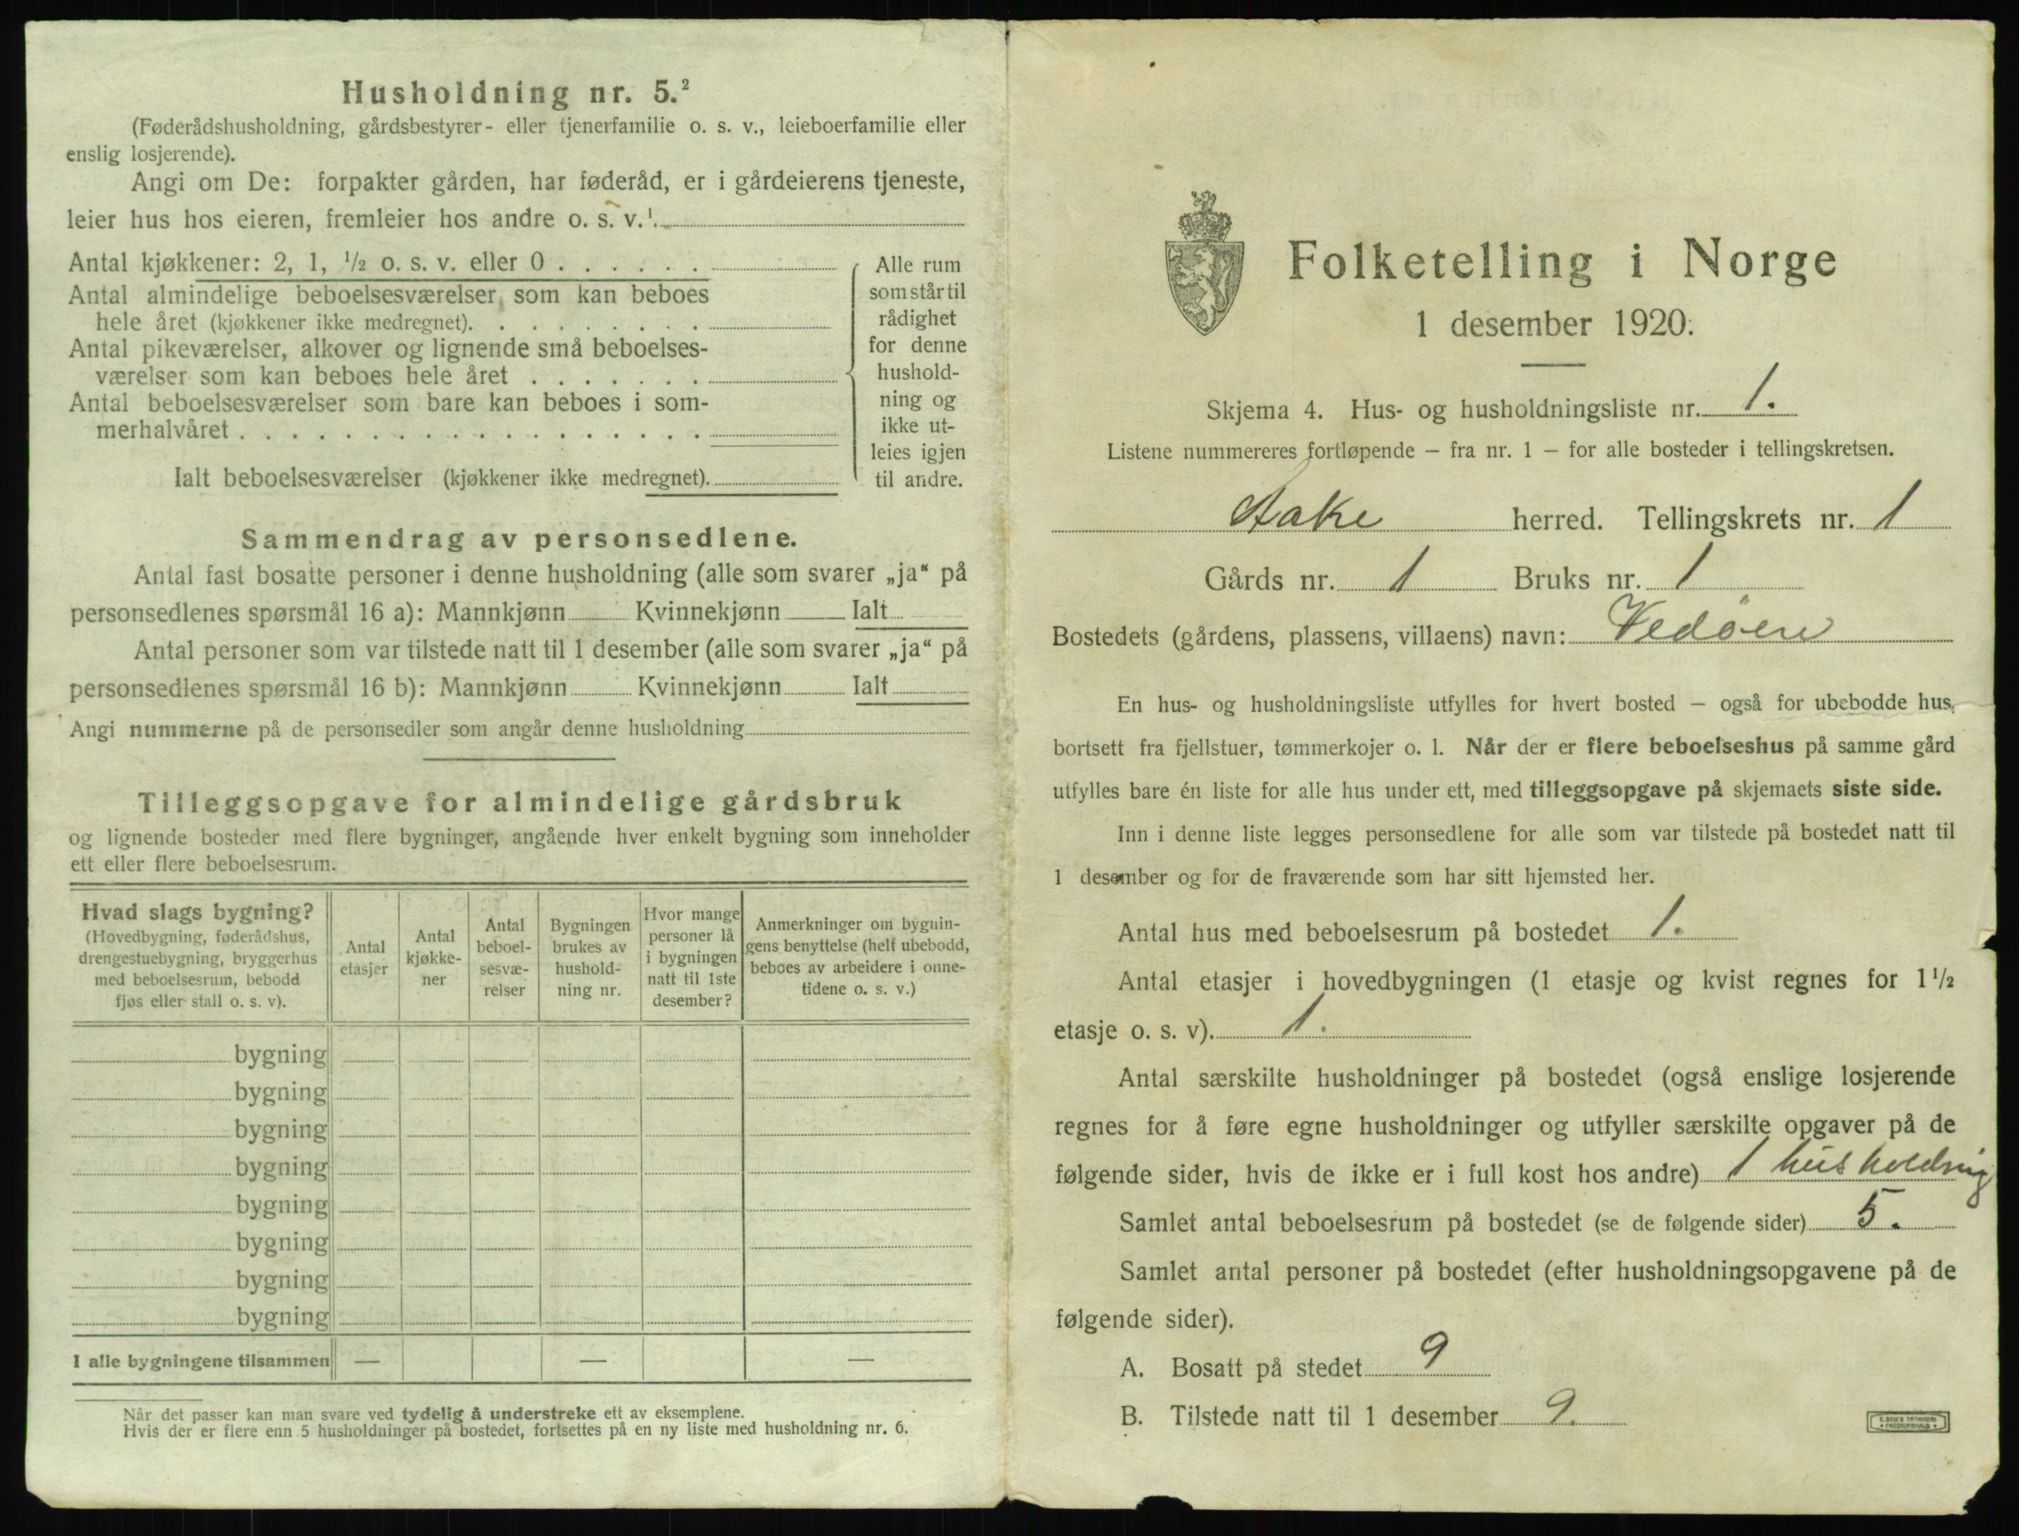 Husholdning nr. 5.²
(Føderådshusholdning, gårdsbestyrer- eller tjenerfamilie o. s. v., leieboerfamilie eller
enslig losjerende).
Angi om De: forpakter gården, har føderåd, er i gårdeierens tjeneste,
leier hus hos eieren, fremleier hos andre o. s. v.¹
Antal kjøkkener: 2, 1, ½ o. s. v. eller 0
Antal almindelige beboelsesværelser som kan beboes
hele året (kjøkkener ikke medregnet).
Antal pikeværelser, alkover og lignende små beboelses-
værelser som kan beboes hele året
Antal beboelsesværelser som bare kan beboes i som-
merhalvåret
Ialt beboelsesværelser (kjøkkener ikke medregnet).
Alle rum
som står til
rådighet
for denne
hushold-
ning og
ikke ut-
leies igjen
til andre.
Sammendrag av personsedlene.
Antal fast bosatte personer i denne husholdning (alle som svarer „ja“ på
personsedlenes spørsmål 16 a): Mannkjønn Kvinnekjønn Ialt
Antal personer som var tilstede natt til 1 desember (alle som svarer „ja“ på
personsedlenes spørsmål 16 b): Mannkjønn Kvinnekjønn Ialt
Angi nummerne på de personsedler som angår denne husholdning
Tilleggsopgave for almindelige gårdsbruk
og lignende bosteder med flere bygninger, angående hver enkelt bygning som inneholder
ett eller flere beboelsesrum.
Hvad slags bygning?
(Hovedbygning, føderådshus,
drengestuebygning, bryggerhus
med beboelsesrum, bebodd
fjøs eller stall o. s. v).
Antal
etasjer
Antal
kjøkke-
ner
Antal
beboel-
sesvæ-
relser
Bygningen
brukes av
hushold-
ning nr.
Hvor mange
personer lå
i bygningen
natt til 1ste
desember?
Anmerkninger om bygnin-
gens benyttelse (helt ubebodd,
beboes av arbeidere i onne-
tidene o. s. v.)
bygning
bygning
bygning
bygning
bygning
bygning
bygning
bygning
I alle bygningene tilsammen — — —
Når det passer kan man svare ved tydelig å understreke ett av eksemplene.
Hvis der er flere enn 5 husholdninger på bostedet, fortsettes på en ny liste med husholdning nr. 6.
Folketelling i Norge
1 desember 1920.
Skjema 4. Hus- og husholdningsliste nr. 1.
Listene nummereres fortløpende – fra nr. 1 – for alle bosteder i tellingskretsen.
Aake herred. Tellingskrets nr. 1
Gårds nr. 1 Bruks nr. 1
Bostedets (gårdens, plassens, villaens) navn: Vedøen
En hus- og husholdningsliste utfylles for hvert bosted – også for ubebodde hus,
bortsett fra fjellstuer, tømmerkojer o. l. Når der er flere beboelseshus på samme gård
utfylles bare én liste for alle hus under ett, med tilleggsopgave på skjemaets siste side.
Inn i denne liste legges personsedlene for alle som var tilstede på bostedet natt til
1 desember og for de fraværende som har sitt hjemsted her.
Antal hus med beboelsesrum på bostedet 1.
Antal etasjer i hovedbygningen (1 etasje og kvist regnes for 1½
etasje o. s. v). 1.
Antal særskilte husholdninger på bostedet (også enslige losjerende
regnes for å føre egne husholdninger og utfyller særskilte opgaver på de
følgende sider, hvis de ikke er i full kost hos andre) 1 husholdning
Samlet antal beboelsesrum på bostedet (se de følgende sider) 5.
Samlet antal personer på bostedet (efter husholdningsopgavene på de
følgende sider).
A. Bosatt på stedet 9
B. Tilstede natt til 1 desember 9.